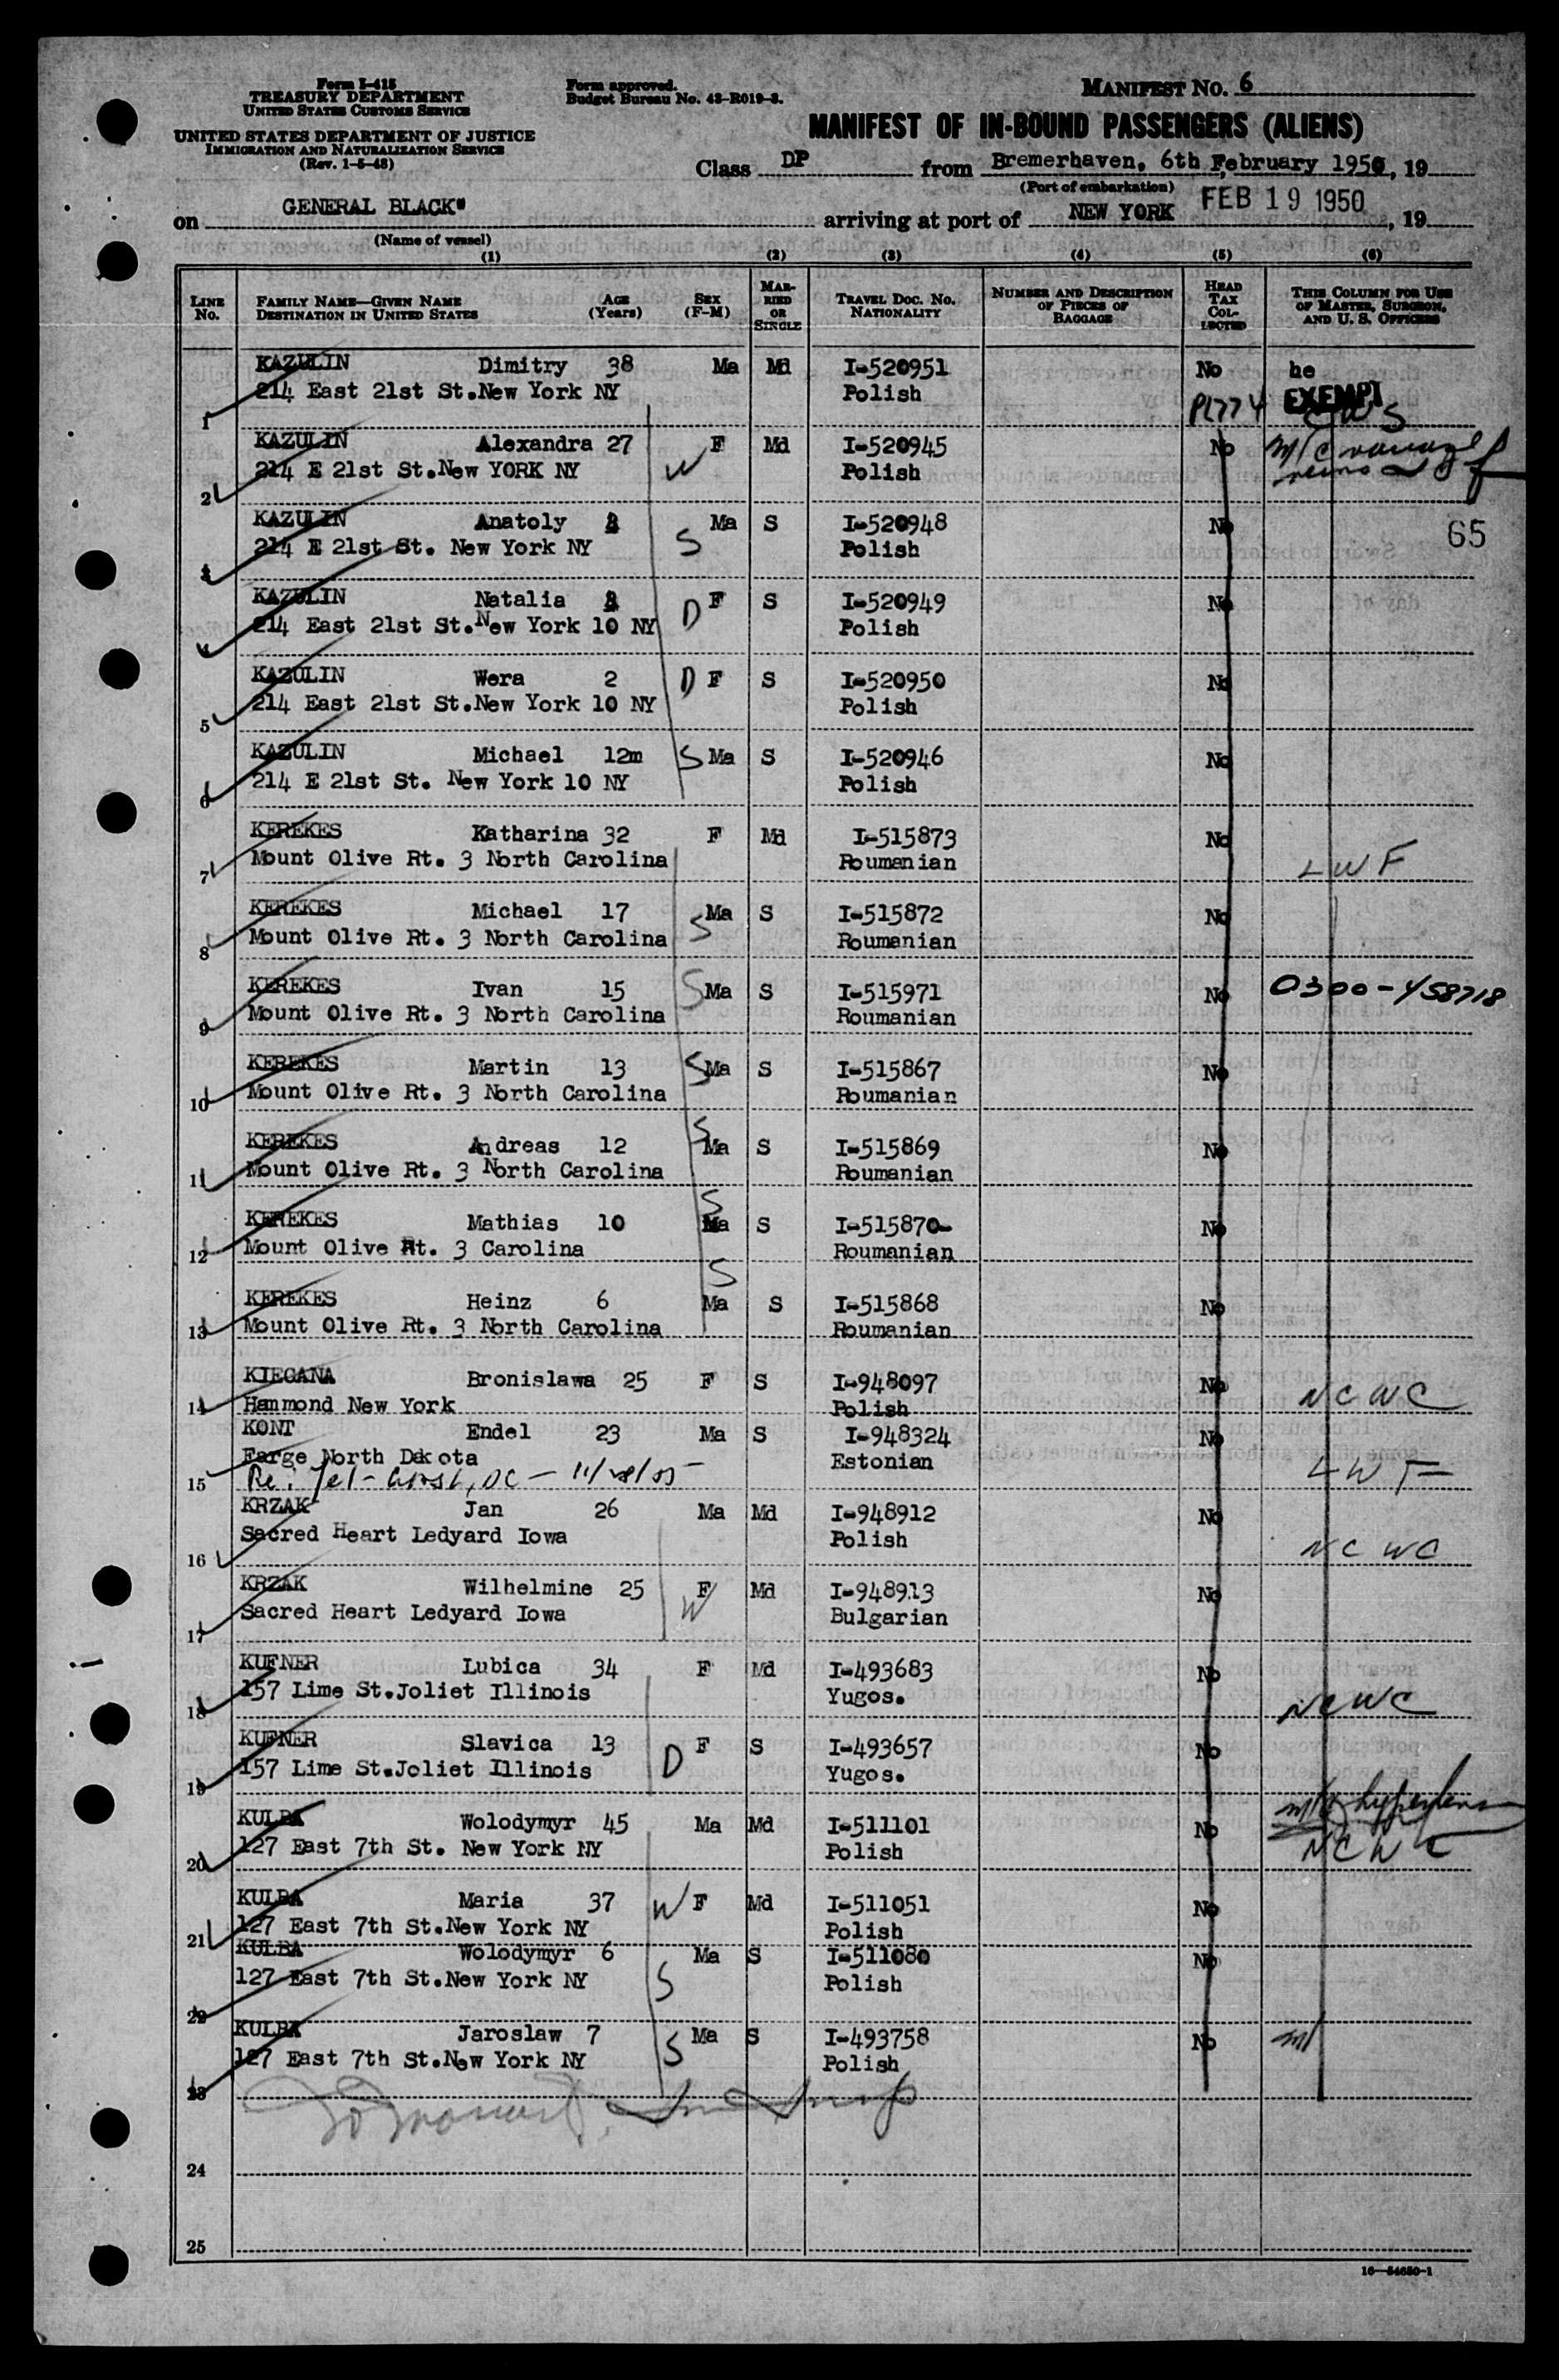 Form I-415
TREASURY DEPARTMENT
UNITED STATES CUSTOMS SERVICE
UNITED STATES DEPARTMENT OF JUSTICE
IMMIGRATION AND NATURALIZATION SERVICE
(Rev. 1-5-48)
Form approved.
Budget Bureau No. 43-R019-3.
MANIFEST NO. 6
MANIFEST OF IN-BOUND PASSENGERS (ALIENS)
Class DP from Bremerhaven, 6th February 1950, 19
(Port of embarkation)
on GENERAL BLACK" arriving at port of NEW YORK FEB 19 1950, 19
(Name of vessel)
(1) (2) (3) (4) (5) (6)
LINE NO. FAMILY NAME—GIVEN NAME DESTINATION IN UNITED STATES AGE (Years) SEX (F-M) MARRIED OR SINGLE TRAVEL DOC. NO. NATIONALITY NUMBER AND DESCRIPTION OF PIECES OF BAGGAGE HEAD TAX COLLECTED THIS COLUMN FOR USE OF MASTER, SURGEON, AND U. S. OFFICERS
KAZULIN Dimitry 38 Ma Md I-520951 No he
214 East 21st St.New York NY Polish PL774 EXEMPT
1 CWS
KAZULIN Alexandra 27 F Md I-520945 No
214 E 21st St.New YORK NY W Polish
2
KAZULIN Anatoly Ma S I-520948 No 65
214 E 21st St. New York NY S Polish
3
KAZULIN Natalia F S I-520949 No
214 East 21st St.New York 10 NY D Polish
4
KAZULIN Wera 2 D F S I-520950 No
214 East 21st St.New York 10 NY Polish
5
KAZULIN Michael 12m S Ma S I-520946 No
214 E 21st St. New York 10 NY Polish
6
KEREKES Katharina 32 F Md I-515873 No
Mount Olive Rt. 3 North Carolina Roumanian LWF
7
KEREKES Michael 17 Ma S I-515872 No
Mount Olive Rt. 3 North Carolina S Roumanian
8
KEREKES Ivan 15 S Ma S I-515971 No 0300-458718
Mount Olive Rt. 3 North Carolina Roumanian
9
KEREKES Martin 13 S Ma S I-515867 No
Mount Olive Rt. 3 North Carolina Roumanian
10
KEREKES Andreas 12 S Ma S I-515869 No
Mount Olive Rt. 3 North Carolina Roumanian
11
KEREKES Mathias 10 S Ma S I-515870- No
Mount Olive Rt. 3 Carolina Roumanian
12
KEREKES Heinz 6 S Ma S I-515868 No
Mount Olive Rt. 3 North Carolina Roumanian
13
KIECANA Bronislawa 25 F S I-948097 No
14 Hammond New York Polish NCWC
KONT Endel 23 Ma S I-948324 No
Farge North Dakota Estonian LWF
15
KRZAK Jan 26 Ma Md I-948912 No
Sacred Heart Ledyard Iowa Polish NCWC
16
KRZAK Wilhelmine 25 F Md I-948913 No
Sacred Heart Ledyard Iowa W Bulgarian
17
KUFNER Lubica 34 F Md I-493683 No
157 Lime St.Joliet Illinois Yugos. NCWC
18
KUFNER Slavica 13 F S I-493657 No
157 Lime St.Joliet Illinois D Yugos.
19
KULBA Wolodymyr 45 Ma Md I-511101 No
127 East 7th St. New York NY Polish NCWC
20
KULBA Maria 37 W F Md I-511051 No
127 East 7th St.New York NY Polish
21
KULBA Wolodymyr 6 Ma S I-511080 No
127 East 7th St.New York NY S Polish
22
KULBA Jaroslaw 7 Ma S I-493758 No
127 East 7th St.New York NY S Polish
23
24
25
16—54650-1